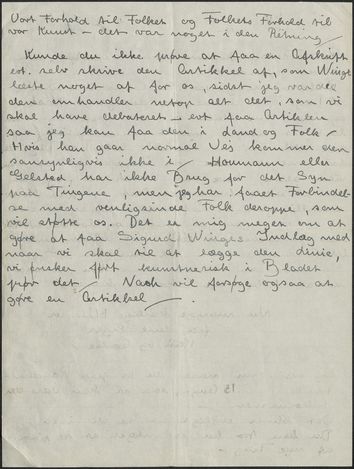 Vort Forhold til Folket og Folkets Forhold til
vor Kunst – det var noget i den Retning /
Kunde du ikke prøve at faa en Afskrift
evt. selv skrive den Artikkel af, som Winge
læste noget af for os, sidst jeg var der
den omhandler netop alt det, som vi
skal have debateret – evt faa Artiklen
saa jeg kan faa den i Land og Folk /
Hvis han gaar normal Vej kommer den
sansynligvis ikke i Houmann eller
Gelsted har ikke Brug for det Syn
paa Tingene, men jeg har faaet Forbindel-
se med venligsinde Folk deroppe, som
vil støtte os. Det er mig megen om at
gøre at faa Sigurd Winges Indlæg med
naar vi skal til at lægge den Linie,
vi ønsker ført kunstnerisk i Bladet
prøv det / Nash vil forsøge ogsaa at
gøre en Artikkel /
13